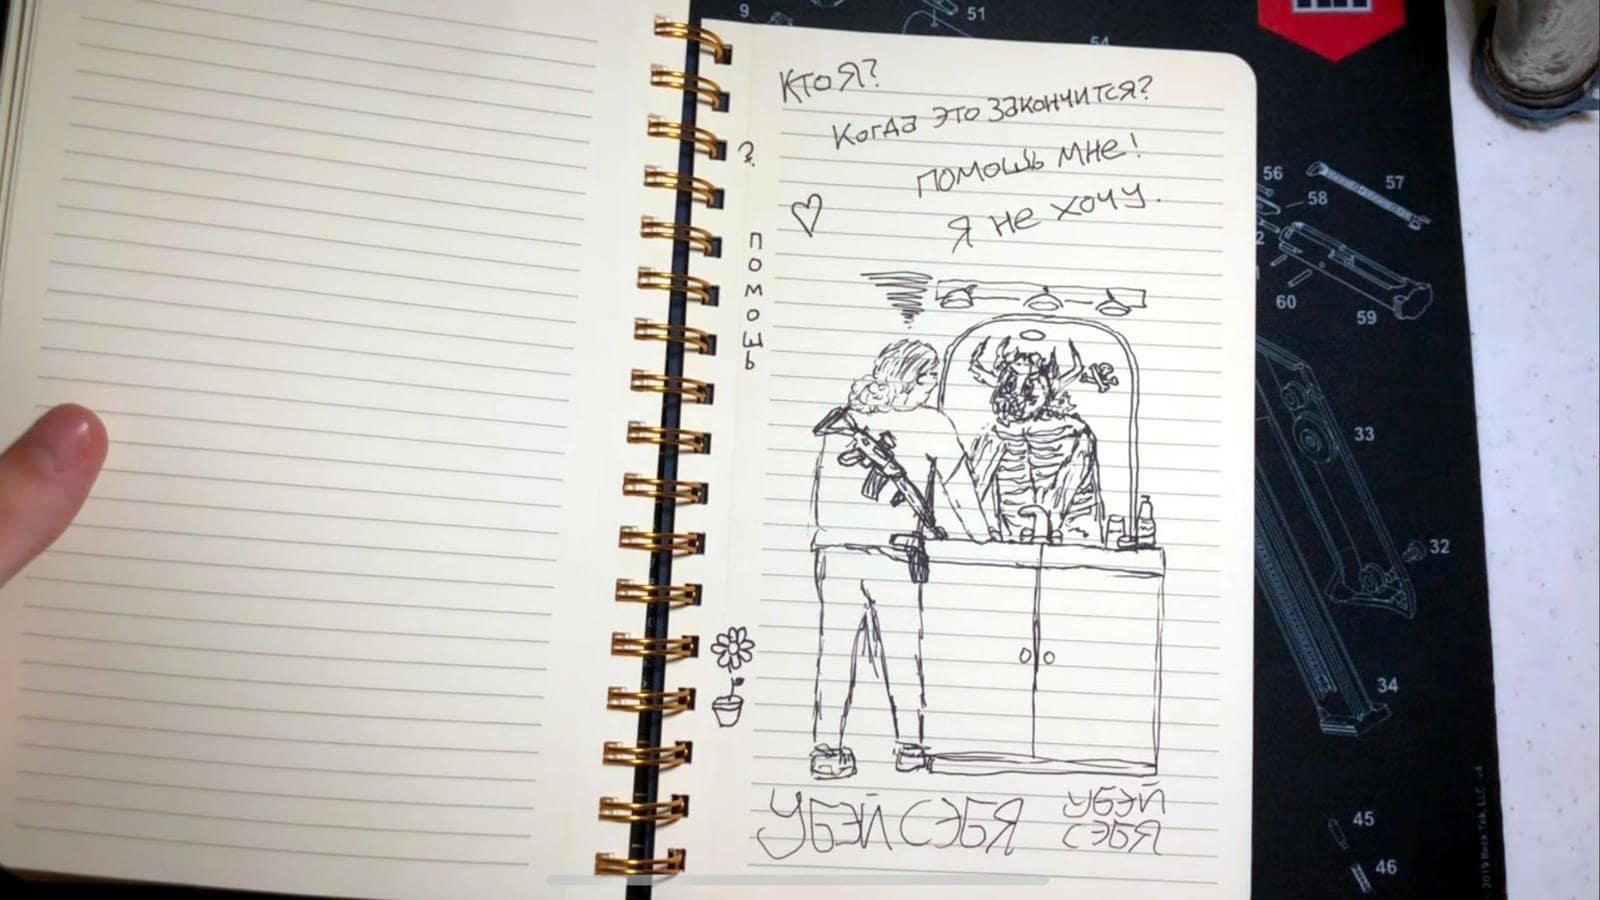 9
51
54
Кто Я?
Когда это закончится?
помошь мне!
Я не хочу.
?
помошь
56
57
58
60
59
33
32
34
убэй сэбя
убэй
сэбя
45
46